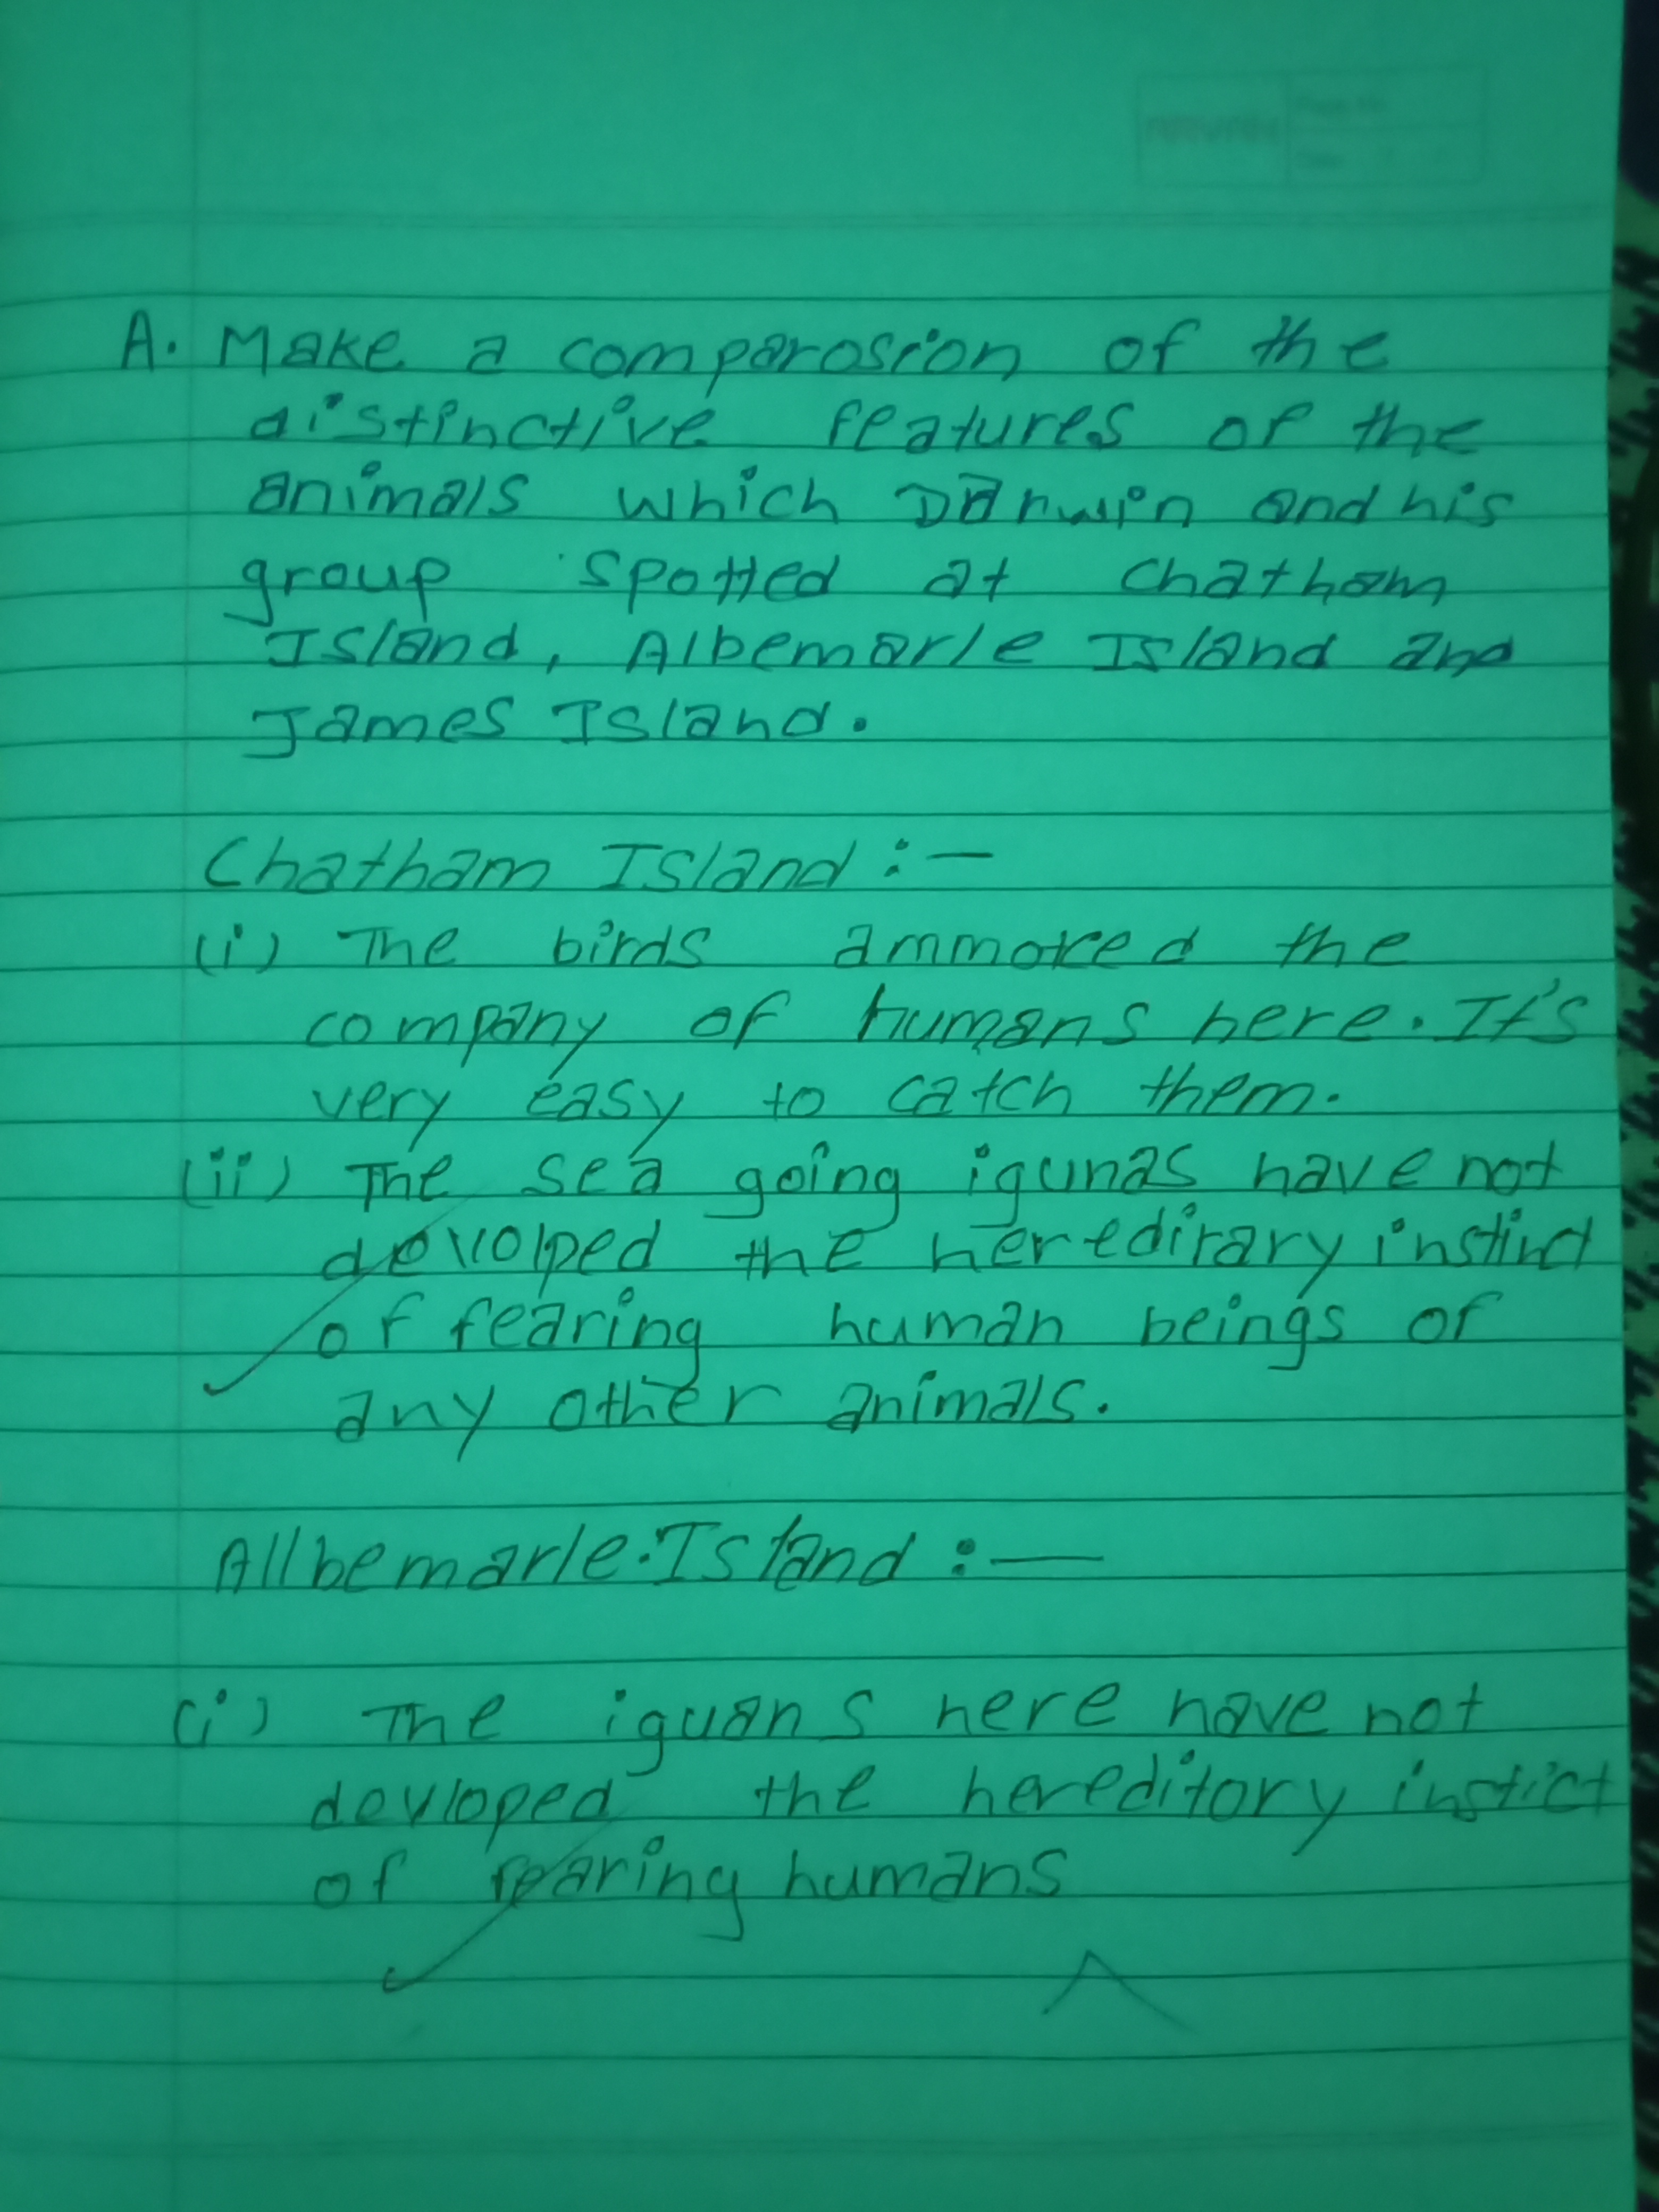 A. Make a comparosion of the
distinctive features of the
animals which Darwin and his
group spotted at Chatham
Island, Albemarle Island and
James Island.
Chatham Island :-
(i) The birds ammored the
company of humans here. It's
very easy to catch them.
(ii) The sea going igunas have not
devolped the heredirary instinct
of fearing human beings of
any other animals.
Allbemarle Island :-
(i) The iguans here have not
devloped the hereditory instict
of fearing humans